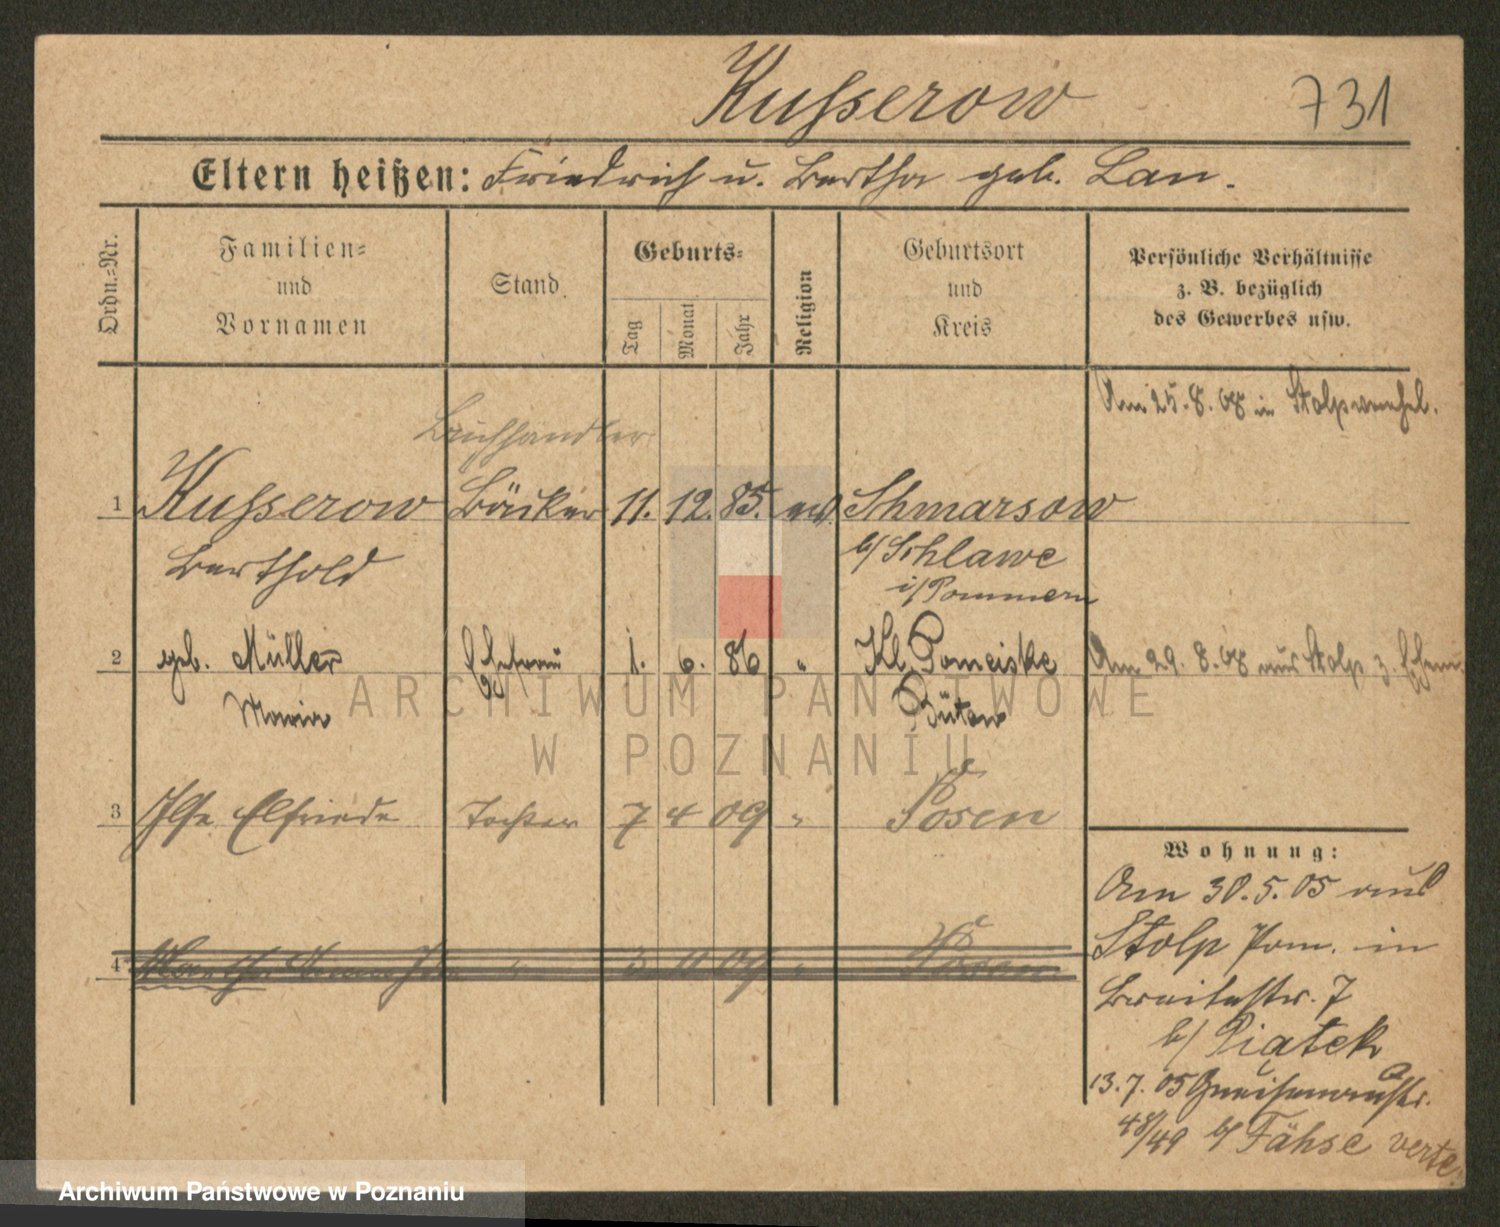 Kusserow 731
Eltern heißen: Friedrich u. Bertha geb. Lau.
Ordn.-Nr.
Familien-
und
Vornamen
Stand
Geburts-
Tag
Monat
Jahr
Religion
Geburtsort
und
Kreis
Persönliche Verhältnisse
z. B. bezüglich
des Gewerbes usw.
Am 25.8.08 in Stolp
Buchhändler
1 Kusserow Bäcker 11. 12. 85. ev. Schmarsow
Berthold b/ Schlawe
i/Pommern
2 geb. Müller Ehefrau 1. 6. 86 " Kl. Pomeiske Am 29.8.08 aus Stolp z.
Maria Bütow
3 Ilse Elfriede Tochter 7 4 09 " Posen
4 " Posen
Wohnung:
Am 30.5.05 aus
Stolp Pom. in
Breitestr. 7
b/ Piątek
13.7.05 Gneisenaustr.
48/49 b/ Fähse verte
ARCHIWUM PAŃSTWOWE
W POZNANIU
Archiwum Państwowe w Poznaniu